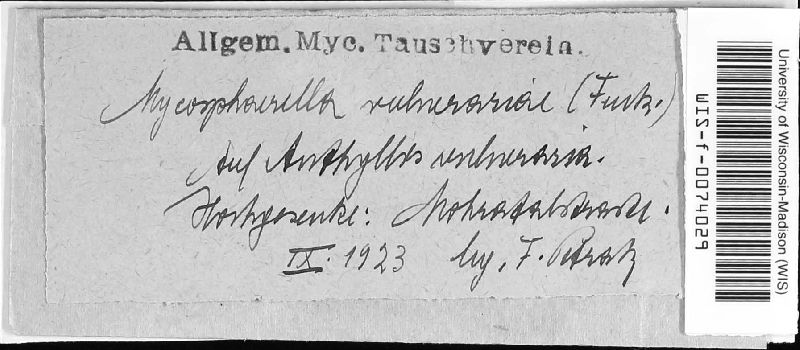 Allgem. Myc. Tauschverein.
Mycosphaerella vulnerariae (Fuck.)
Auf Anthyllis vulneraria.
Hochgesenke: Mohratalstrasse.
IX. 1923 leg. F. Petrak
University of Wisconsin-Madison (WIS)
WIS-f-0074029